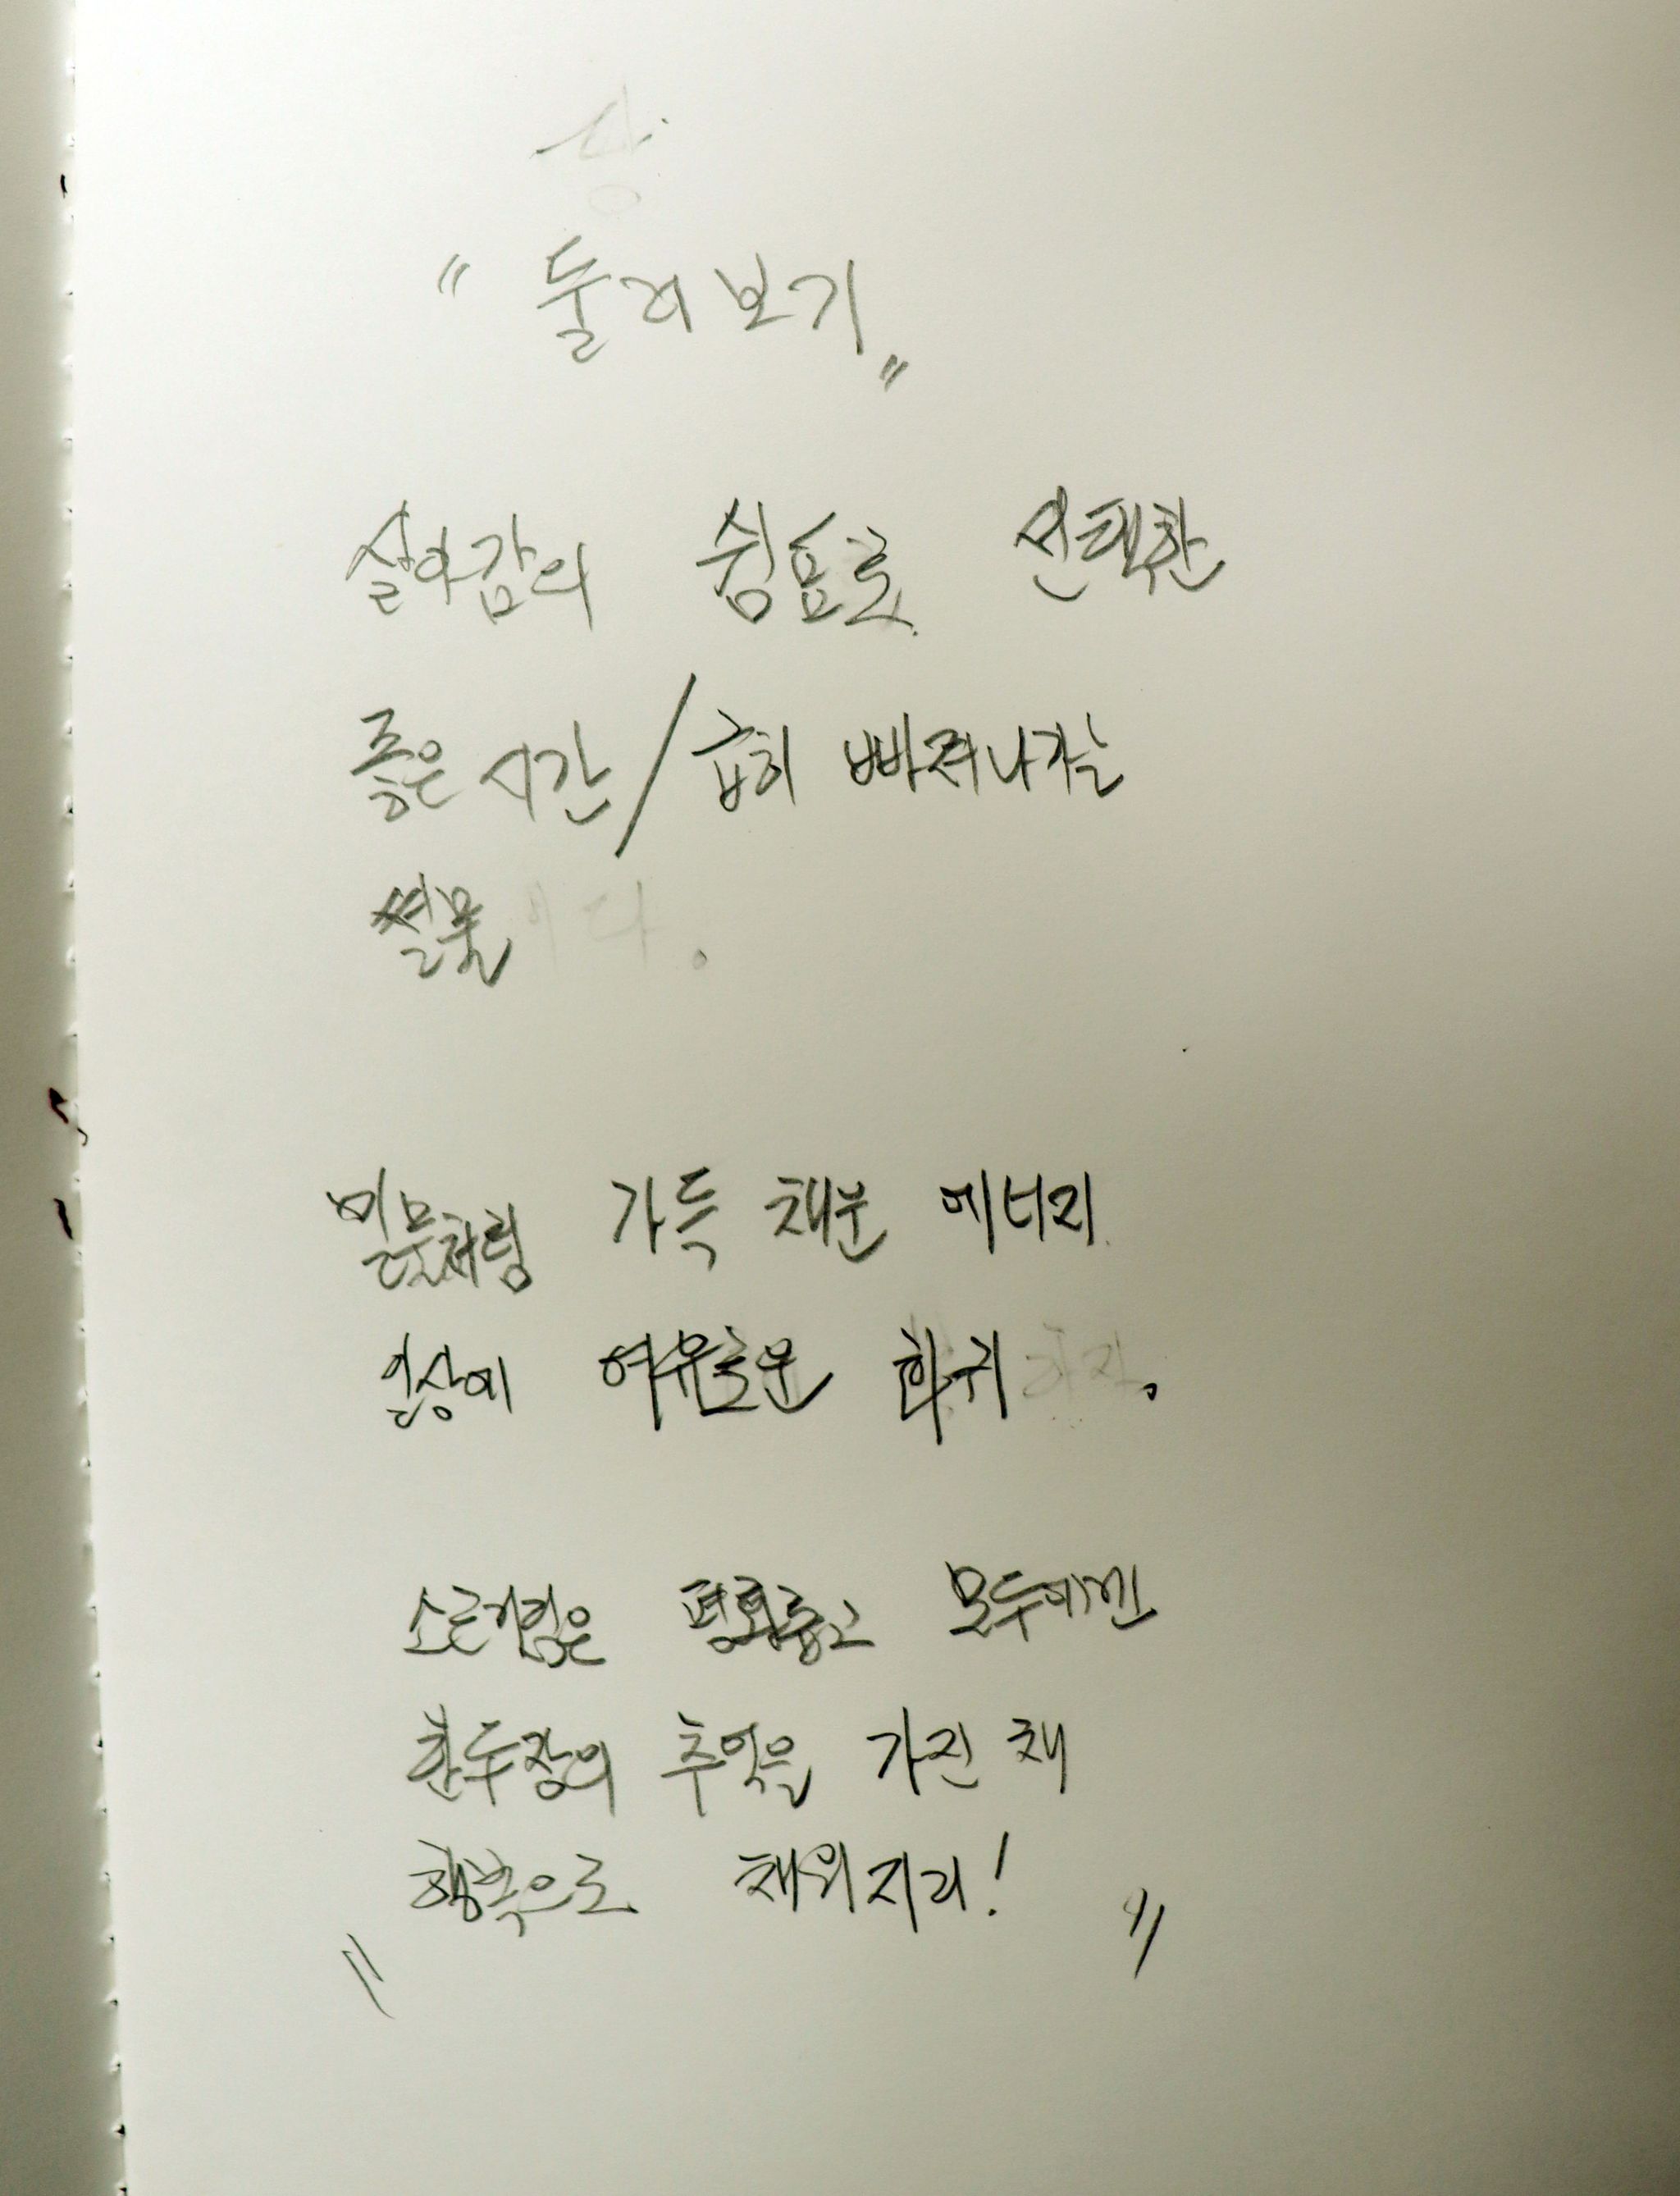 " 둘러보기 "
살아감의 쉼표로 선택한
좋은 시간 / 급히 빠져나가는
썰물
밀물처럼 가득 채운 에너지
일상에 여유로운 회귀.
소근거림은 모두에겐
한두장의 추억을 가진 채
행복으로 채워지리!
" "